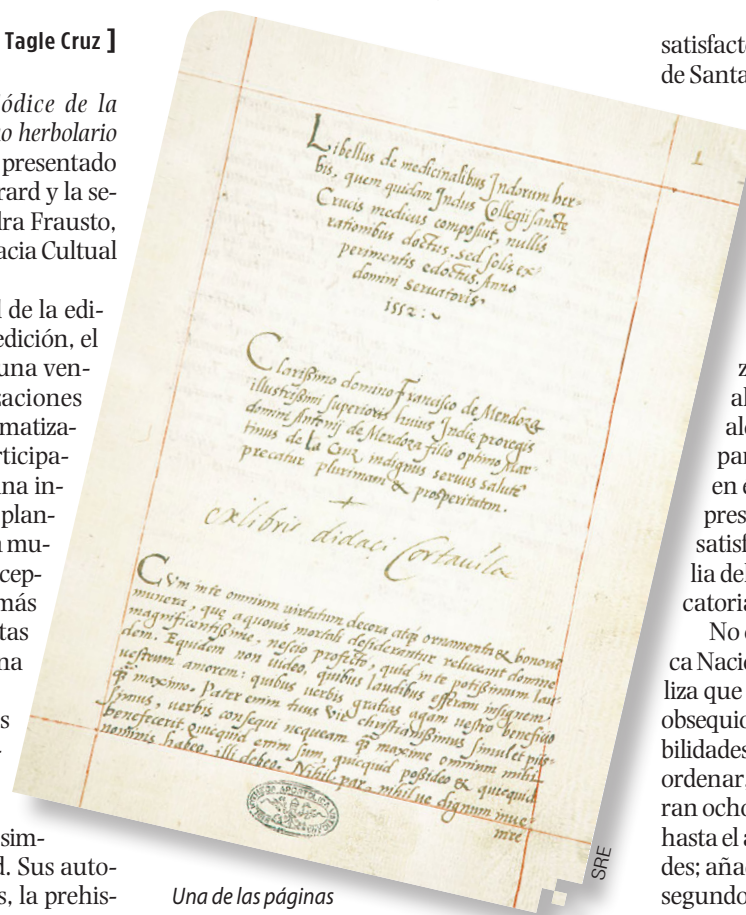 Tagle Cruz ]
ódice de la
o herbolario
presentado
rard y la se-
dra Frausto,
acia Cultual
l de la edi-
edición, el
una ven-
zaciones
matiza-
rticipa-
na in-
plan-
mu-
cep-
más
tas
na
s
sim-
d. Sus auto-
s, la prehis-
1
Libellus de medicinalibus Indorum her-
bis, quem quidam Indus Collegii sancte
Crucis medicus composuit, nullis
rationibus doctus, sed solis ex-
perimentis edoctus. Anno
domini seruatoris
1552:~
Clarißimo domino Francisco de Mendoza
illustrißimi superioris huius Indie proregis
domini Antonij de Mendoza filio optimo Mar-
tinus de la Cruz indignus seruus salutē
precatur plurimam & prosperitatem.
ex libris didaci Cortauila
Cum in te omnium uirtutum decora atq̃ ornamenta & bonorū
munera, que a quouis mortali desiderantur reluceant domine
magnificentißime, nescio profecto, quid in te potißimum lau-
dem. Equidem non uideo, quibus laudibus efferam insignem
uestrum amorem: quibus uerbis gratias agam uestro beneficio
q̃ maximo. Pater enim tuus uir christianißimus simul et pijs-
simus, uerbis consequi nequeam q̃ maxime omnium mihi
benefecerit. Quicquid enim sum, quicquid poßideo & quicquid
nominis habeo, illi debeo. Nihil par, nihilue dignum inue-
nire
SRE
Una de las páginas
satisfact
de Santa
z
al
alc
par
en e
pres
satisf
lia del
catoria
No
ca Nacio
liza que
obsequio
bilidades
ordenar,
ran ocho
hasta el a
des; aña
segundo